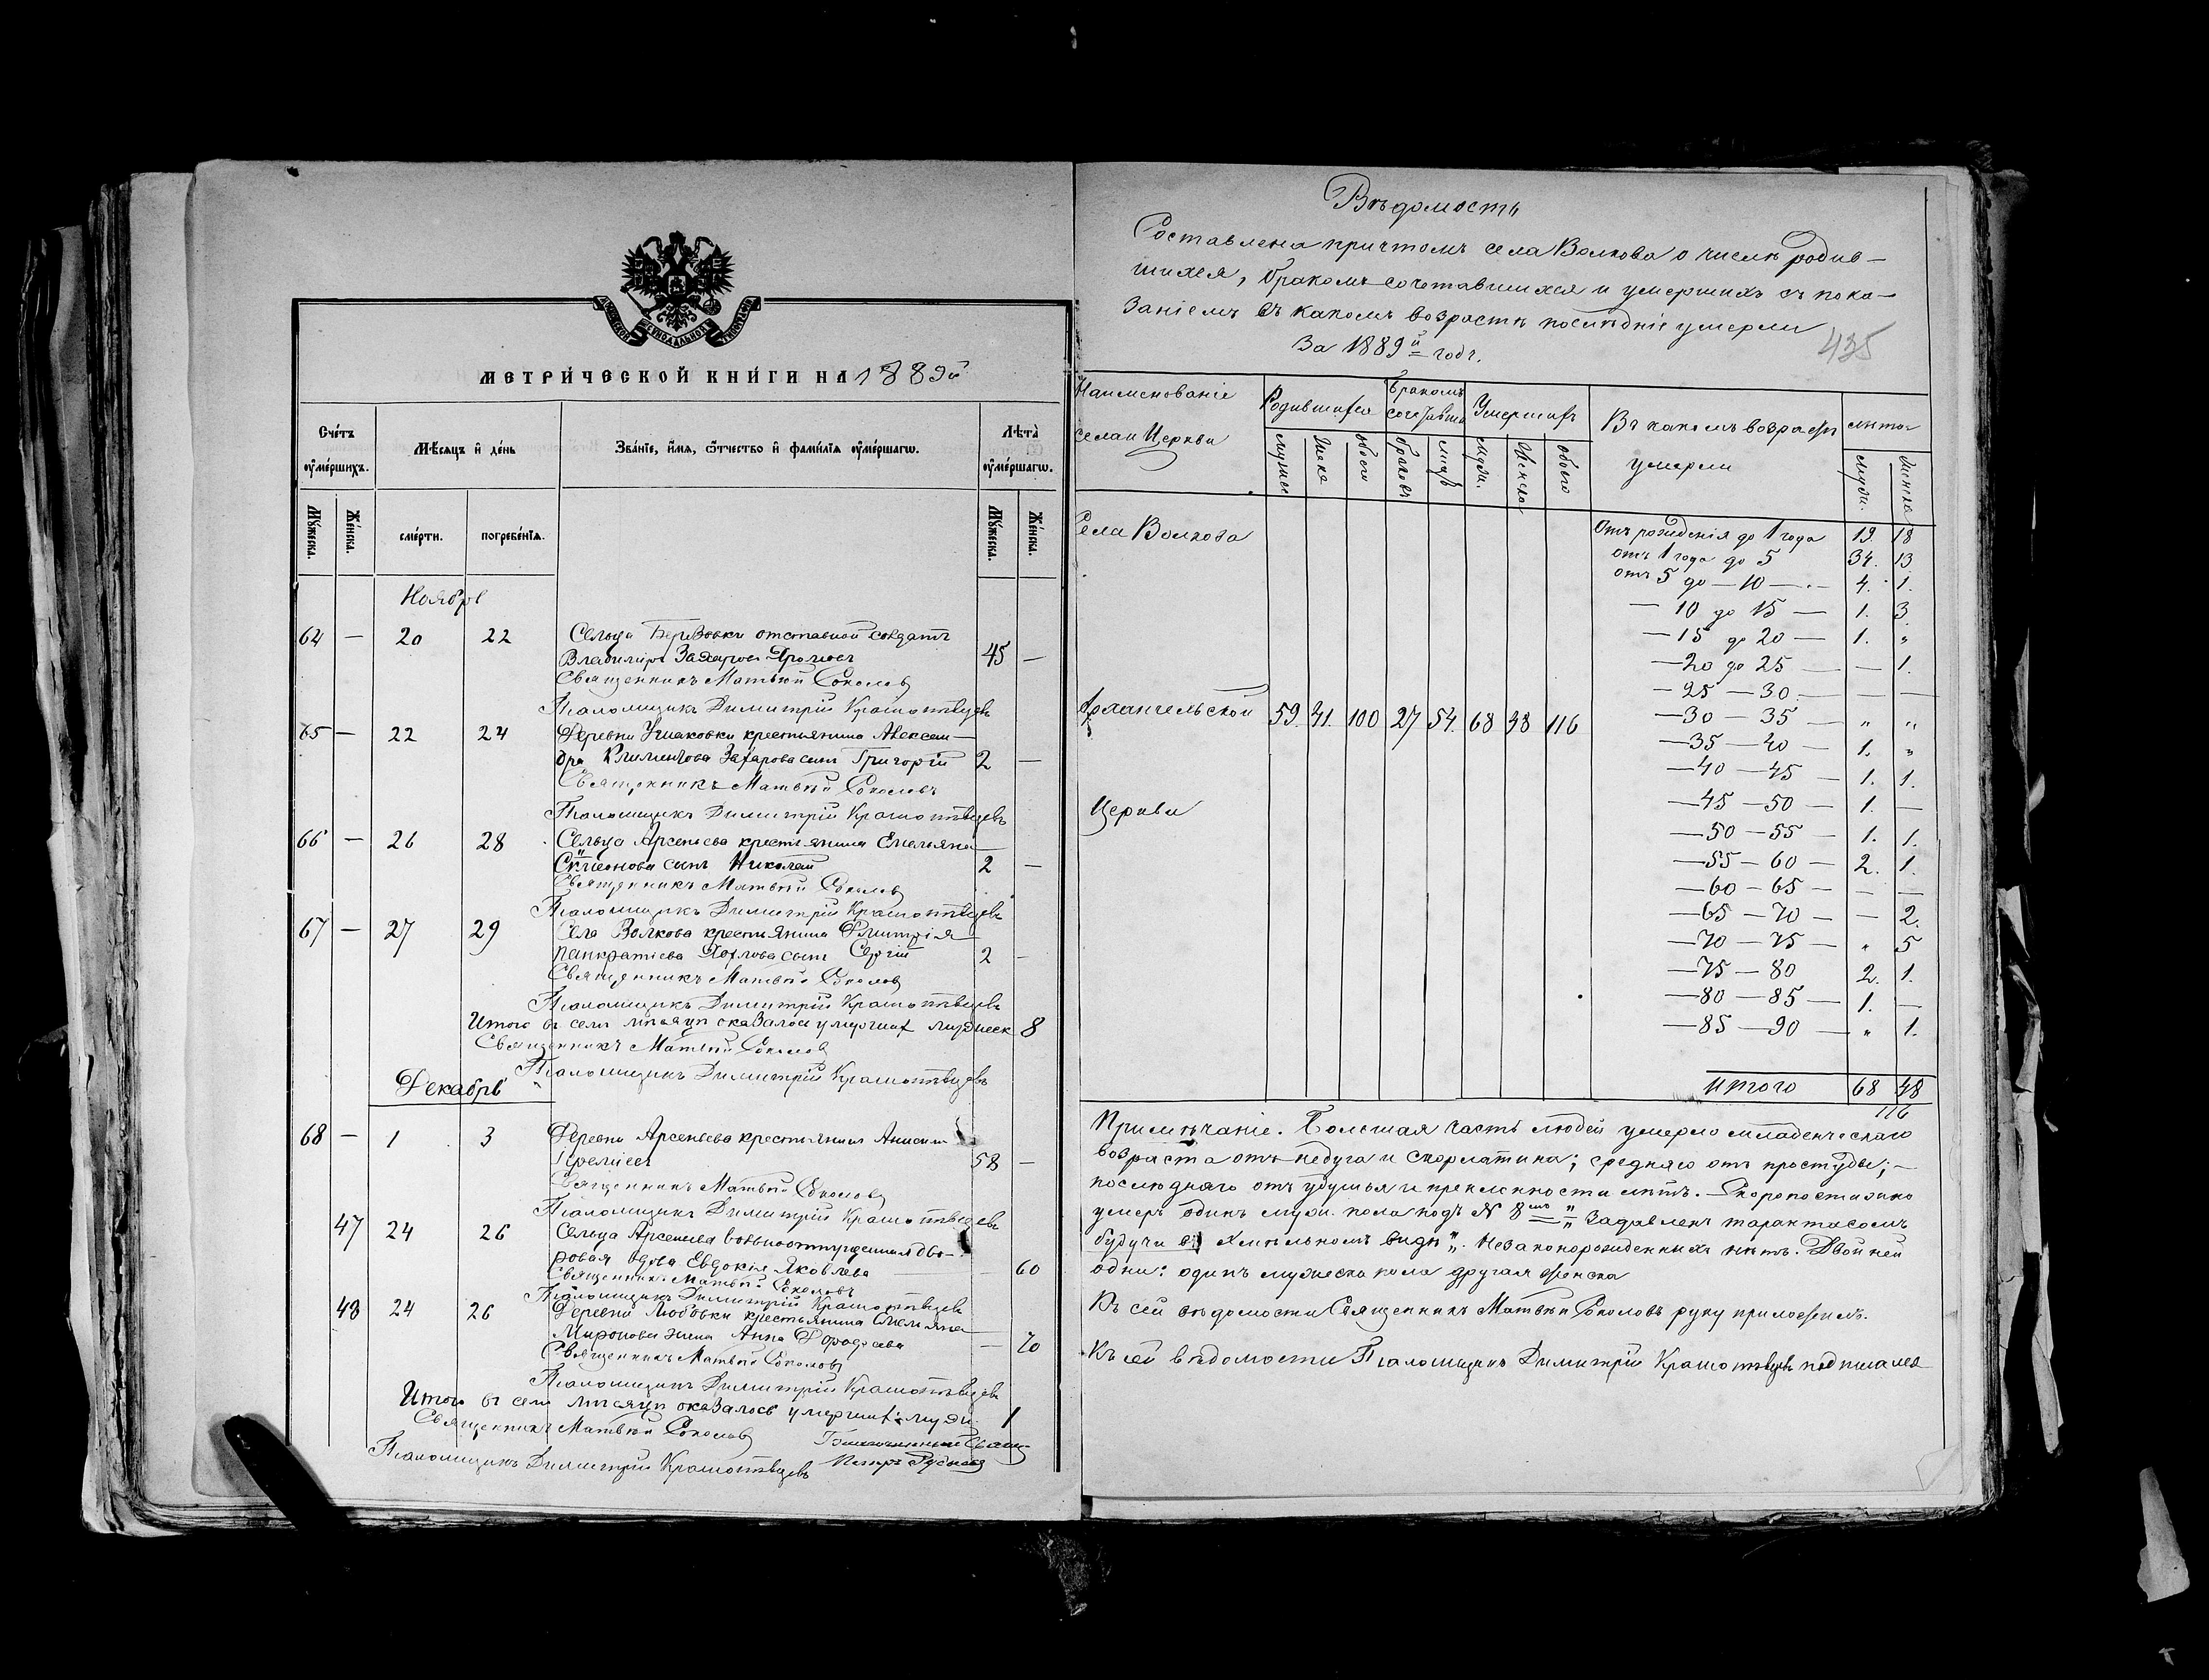 МОСКОВСКОЙ СѴНОДАЛЬНОЙ ТИПОГРАФІИ
МЕТРИ́ЧЕСКОЙ КНИ́ГИ НА 1889й
Сче́тъ ᲂу҆ме́ршихъ.
Мѣ́сяцъ и҆ де́нь
Зва́нїе, и҆́мя, ѻ҆́тчество и҆ фами́лїя ᲂу҆ме́ршагѡ.
Лѣ́та ᲂу҆ме́ршагѡ.
Мꙋ́жеска.
Же́нска.
сме́рти.
погребе́нїя.
Мꙋ́жеска.
Же́нска.
Ноябрь
64 — 20 22 Сельца Березовки отставной солдатъ
Владиміръ Захаровъ 45 —
Священникъ Матвѣй Соколовъ
Псаломщикъ Димитрій Краснопѣвцевъ
65 — 22 24 Деревни Ушаковки крестьянина Алексан—
дра Климентова Захарова сынъ Григорій 2 —
Священникъ Матвѣй Соколовъ
Псаломщикъ Димитрій Краснопѣвцевъ
66 — 26 28 Сельца Арсеньева крестьянина Емельяна
Симеонова сынъ Николай 2 —
Священникъ Матвѣй Соколовъ
Псаломщикъ Димитрій Краснопѣвцевъ
67 — 27 29 Села Волкова крестьянина Дмитрія
Панкратіева сынъ Сергій 2 —
Священникъ Матвѣй Соколовъ
Псаломщикъ Димитрій Краснопѣвцевъ
Итого въ семъ мѣсяцѣ оказалось умершихъ мужеск 8
Священникъ Матвѣй Соколовъ
Псаломщикъ Димитрій Краснопѣвцевъ
Декабрь
68 — 1 3 Деревни Арсеньева крестьянинъ
58 —
Священникъ Матвѣй Соколовъ
Псаломщикъ Димитрій Краснопѣвцевъ
47 24 26 Сельца Арсеньева вольноотпущенная дво—
ровая вдова Евдокія Яковлева — 60
Священникъ Матвѣй Соколовъ
Псаломщикъ Димитрій Краснопѣвцевъ
48 24 26 Деревни Любовки крестьянина Емельяна
Миронова жена Анна — 70
Священникъ Матвѣй Соколовъ
Псаломщикъ Димитрій Краснопѣвцевъ
Итого въ семъ мѣсяцѣ оказалось умершихъ: муж. 1
Священникъ Матвѣй Соколовъ
Псаломщикъ Димитрій Краснопѣвцевъ
Благочинный Свящ.
Петръ Рудневъ
Вѣдомость
Составлена причтомъ села Волкова о числѣ родив—
шихся, бракомъ сочетавшихся и умершихъ съ пока—
заніемъ въ какомъ возрастѣ послѣдніе умерли
За 1889й годъ.
435
Наименованіе села и Церкви
Родившихся
бракомъ сочетавши
Умершихъ
Въ какомъ возрастѣ умерли
лѣта
мужес
женс
обоего
браковъ
лицъ
муж.
женска
обоего
муж.
женска
Села Волкова
Архангельской 59. 41. 100 27 54. 68 48 116
Церкви
Отъ рожденія до 1 года 19. 18
отъ 1 года до 5 34. 13
отъ 5 до — 10 — 4. 1.
— 10 до 15 — 1. 3.
— 15 до 20 — 1. „
— 20 до 25 — — 1.
— 25 — 30 — — —
— 30 — 35 — „ „
— 35 — 40 — 1. „
— 40 — 45 — 1. 1.
— 45 — 50 — 1. —
— 50 — 55 — 1. 1.
— 55 — 60 — 2. 1.
— 60 — 65 — — —
— 65 — 70 — — 2.
— 70 — 75 — „ 5
— 75 — 80 2. 1.
— 80 — 85 — 1. —
— 85 — 90 — „ 1.
Итого 68 48
116
Примѣчаніе. Большая часть людей умерло младенческаго
возраста отъ недуга и скорлатина; средняго отъ простуды; —
послѣдняго отъ удушья и преклонности лѣтъ. Скоропостижно
умеръ одинъ муж. пола подъ N 8мъ „ Задавленъ тарантасомъ
будучи въ хмѣльномъ видѣ „. Незаконорожденныхъ нѣтъ. Двойней
одни: одинъ мужеска пола другая женска
Къ сей вѣдомости Священникъ Матвѣй Соколовъ руку приложилъ.
Къ сей вѣдомости Псаломщикъ Димитрій Краснопѣвцевъ подписался